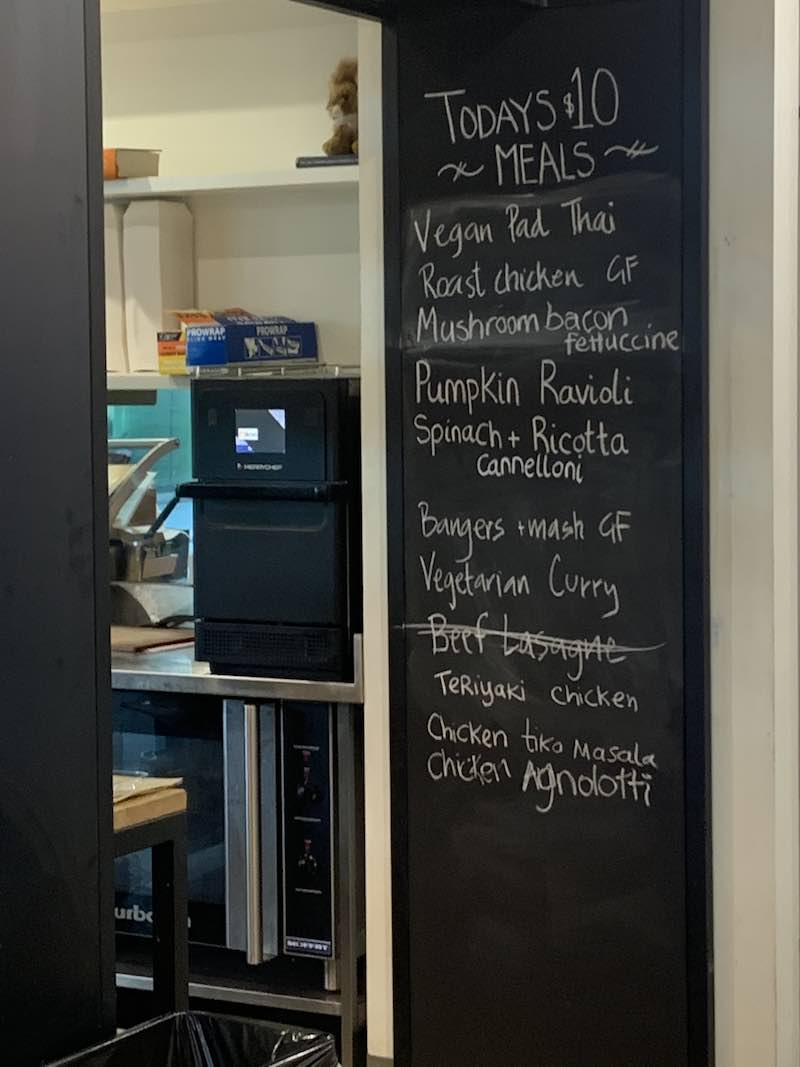 TODAYS $10
~ MEALS ~
Vegan Pad Thai
Roast chicken GF
Mushroom bacon
fettuccine
Pumpkin Ravioli
Spinach + Ricotta
cannelloni
Bangers + mash GF
Vegetarian Curry
Beef Lasagne
Teriyaki chicken
Chicken tika Masala
Chicken Agnolotti
PROWRAP
PROWRAP
MERRYCHEF
MOFFAT